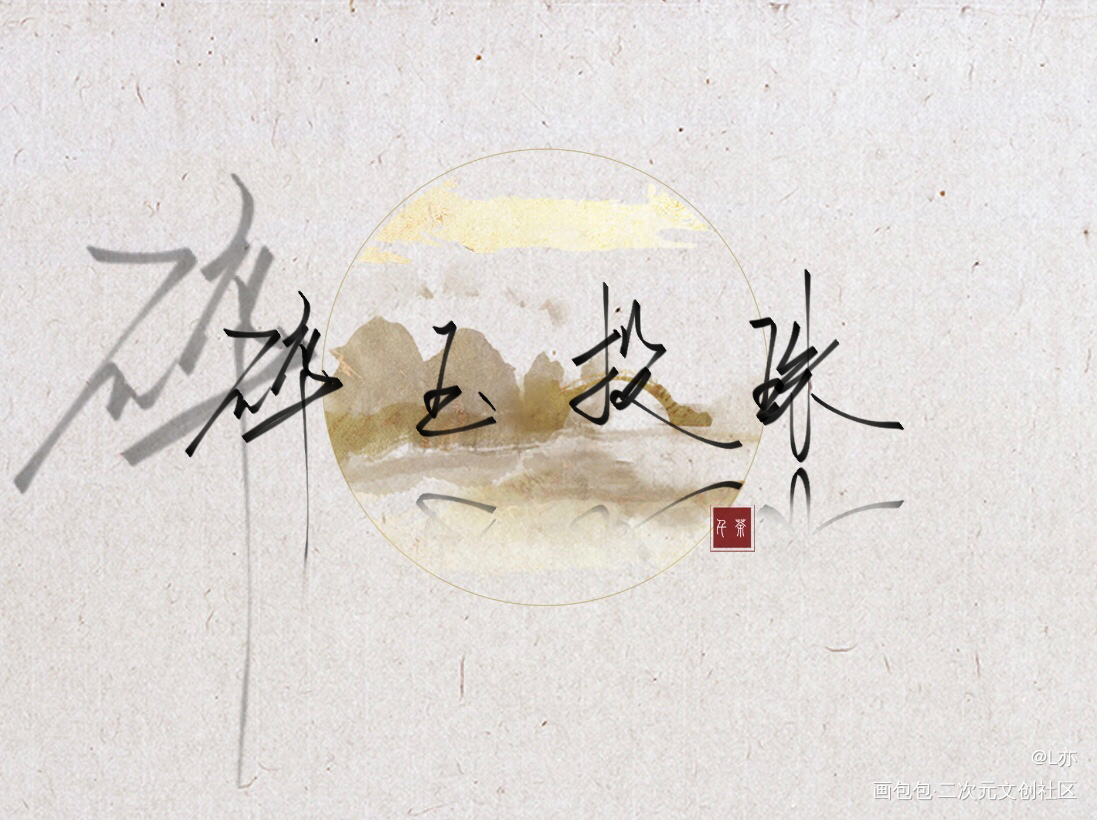 碎
碎玉投珠
@L亦
画包包·二次元文创社区